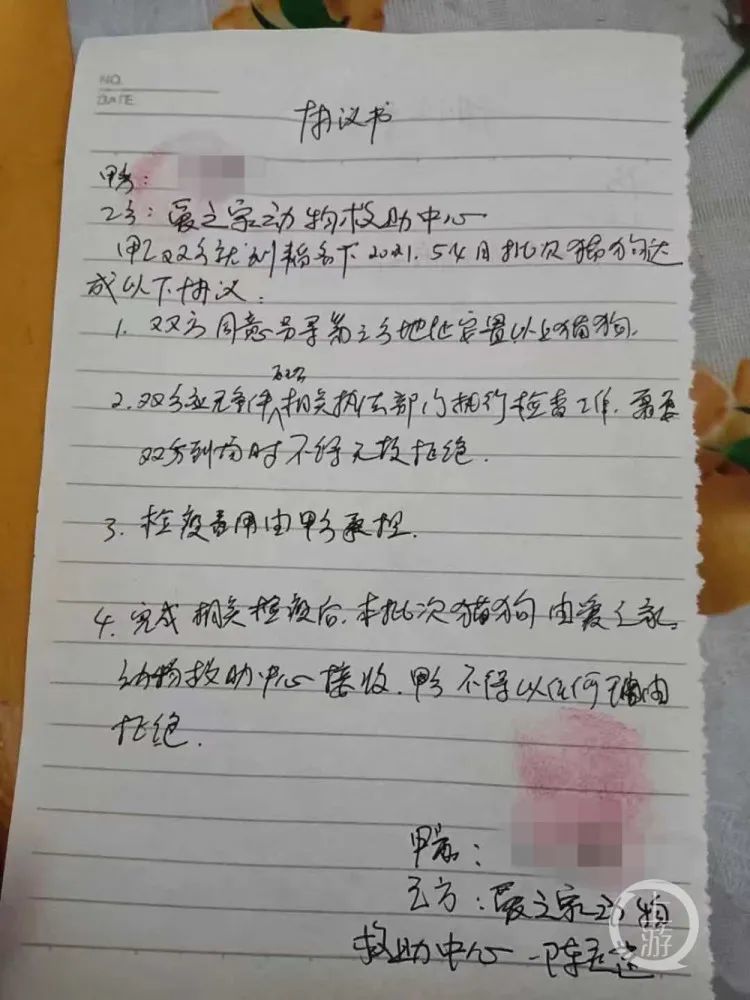 NO.
DATE
协议书
甲方：
乙方：爱之家动物救助中心
甲乙双方就刘 名下2021.5.4日批次猫狗达
成以下协议：
1. 双方同意另寻第三方地位安置以上猫狗.
2. 双方应无条件配合相关执法部门执行检查工作.需要
双方到场时不得无故拒绝.
3. 检疫费用由甲方承担.
4. 完成相关检疫后.本批次猫狗由爱之家
动物救助中心接收.甲方不得以任何理由
拒绝.
甲方：
乙方：爱之家动物
救助中心 陈
上游